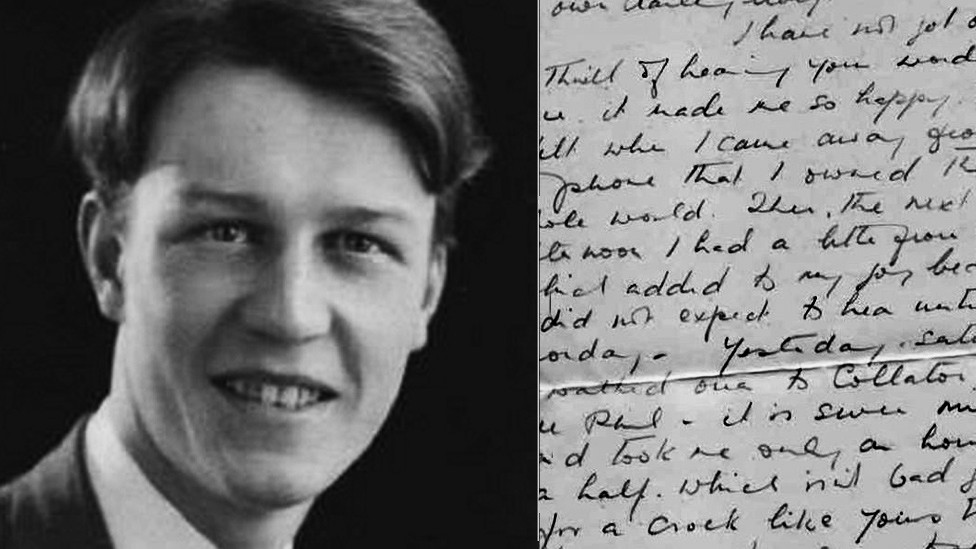 own darling
I have not got o
Thrill of hearing your word
it made me so happy.
elt when I came away from
phone that I owned th
ole world. Then, the next
noon I had a letter from
hich added to my joy bec
did not expect to hear unti
onday, - Yesterday, Satu
walked over to Collaton
- it is seven mi
nd took me only an hour
a half. which isn't bad g
for a crock like yours t